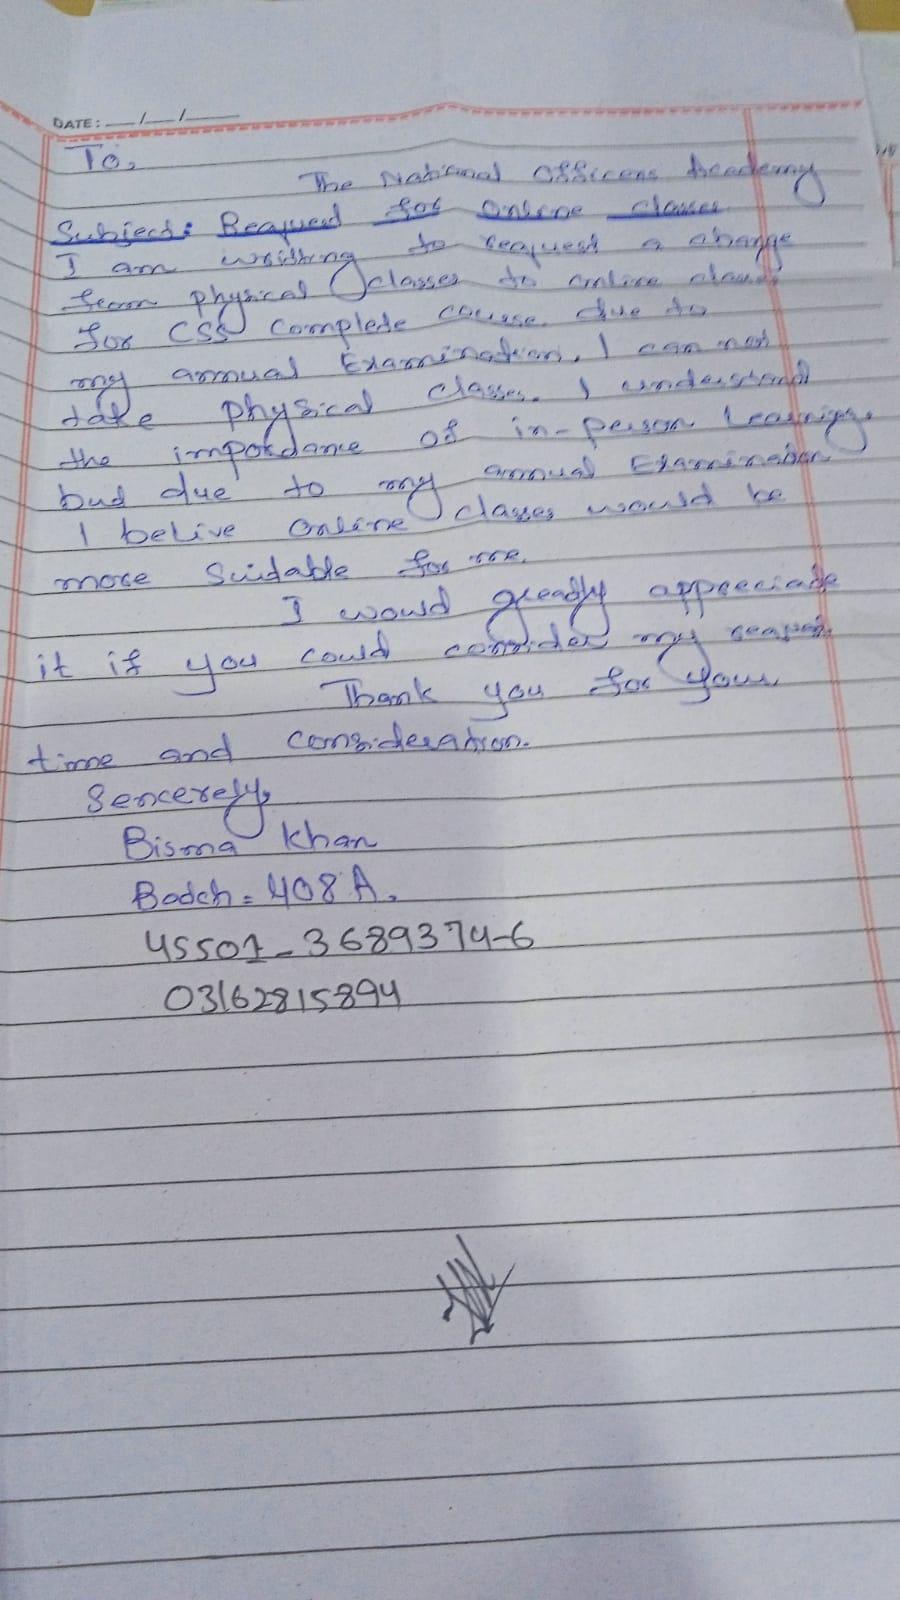 DATE: __/__/____
To,
The National Officers Academy
Subject: Request for online classes
I am writing to request a change
from physical classes to online classes
for CSS Complete course. due to
my annual Examination, I can not
take physical classes. I understand
the importance of in-person learning,
but due to my annual Examination
I belive online classes would be
more Suitable for me.
I would greatly appreciate
it if you could consider my request.
Thank you for your
time and consideration.
Sencerely,
Bisma Khan
Batch = 408 A.
45501-3689374-6
03162815894